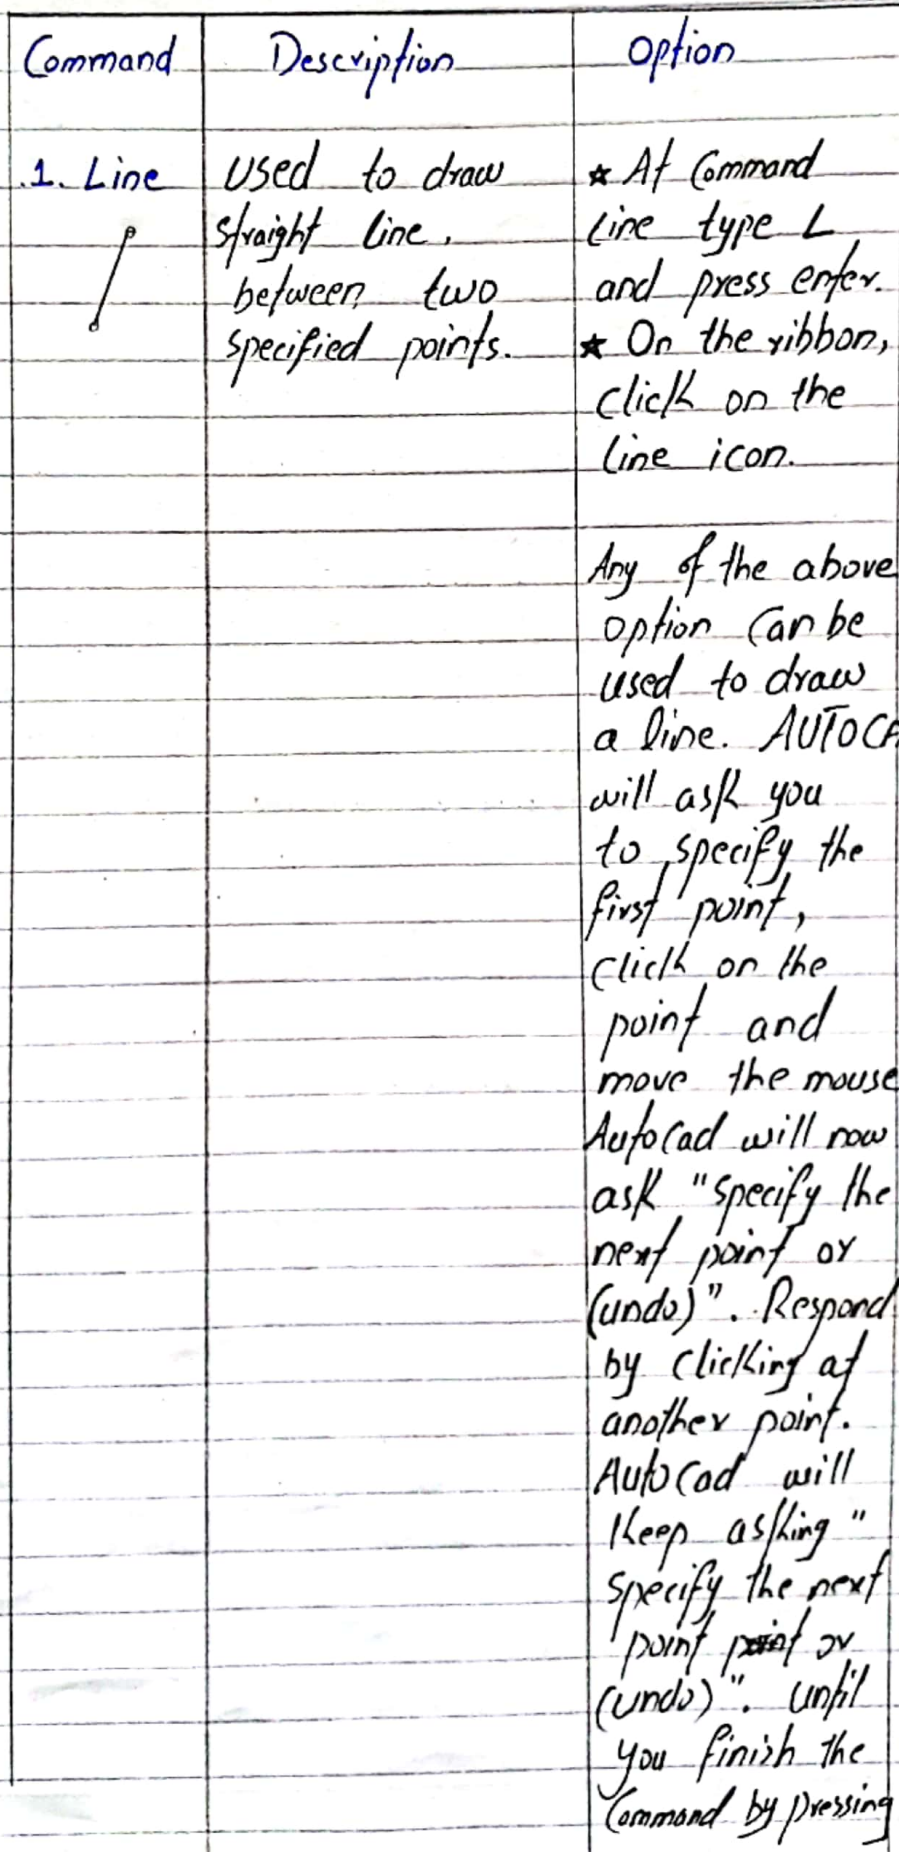 Command Description Option
.1. Line
Used to draw
straight line.
between two
specified points.
★ At Command
Line type L
and press enter.
★ On the ribbon,
Click on the
Line icon.
Any of the above
option Can be
used to draw
a line. AUTOCA
will ask you
to specify the
first point,
Click on the
point and
move the mouse
AutoCad will now
ask "specify the
next point or
(undo)". Respond
by Clicking at
another point.
AutoCad will
Keep asking "
specify the next
point or
(undo)". Until
you finish the
Command by pressing